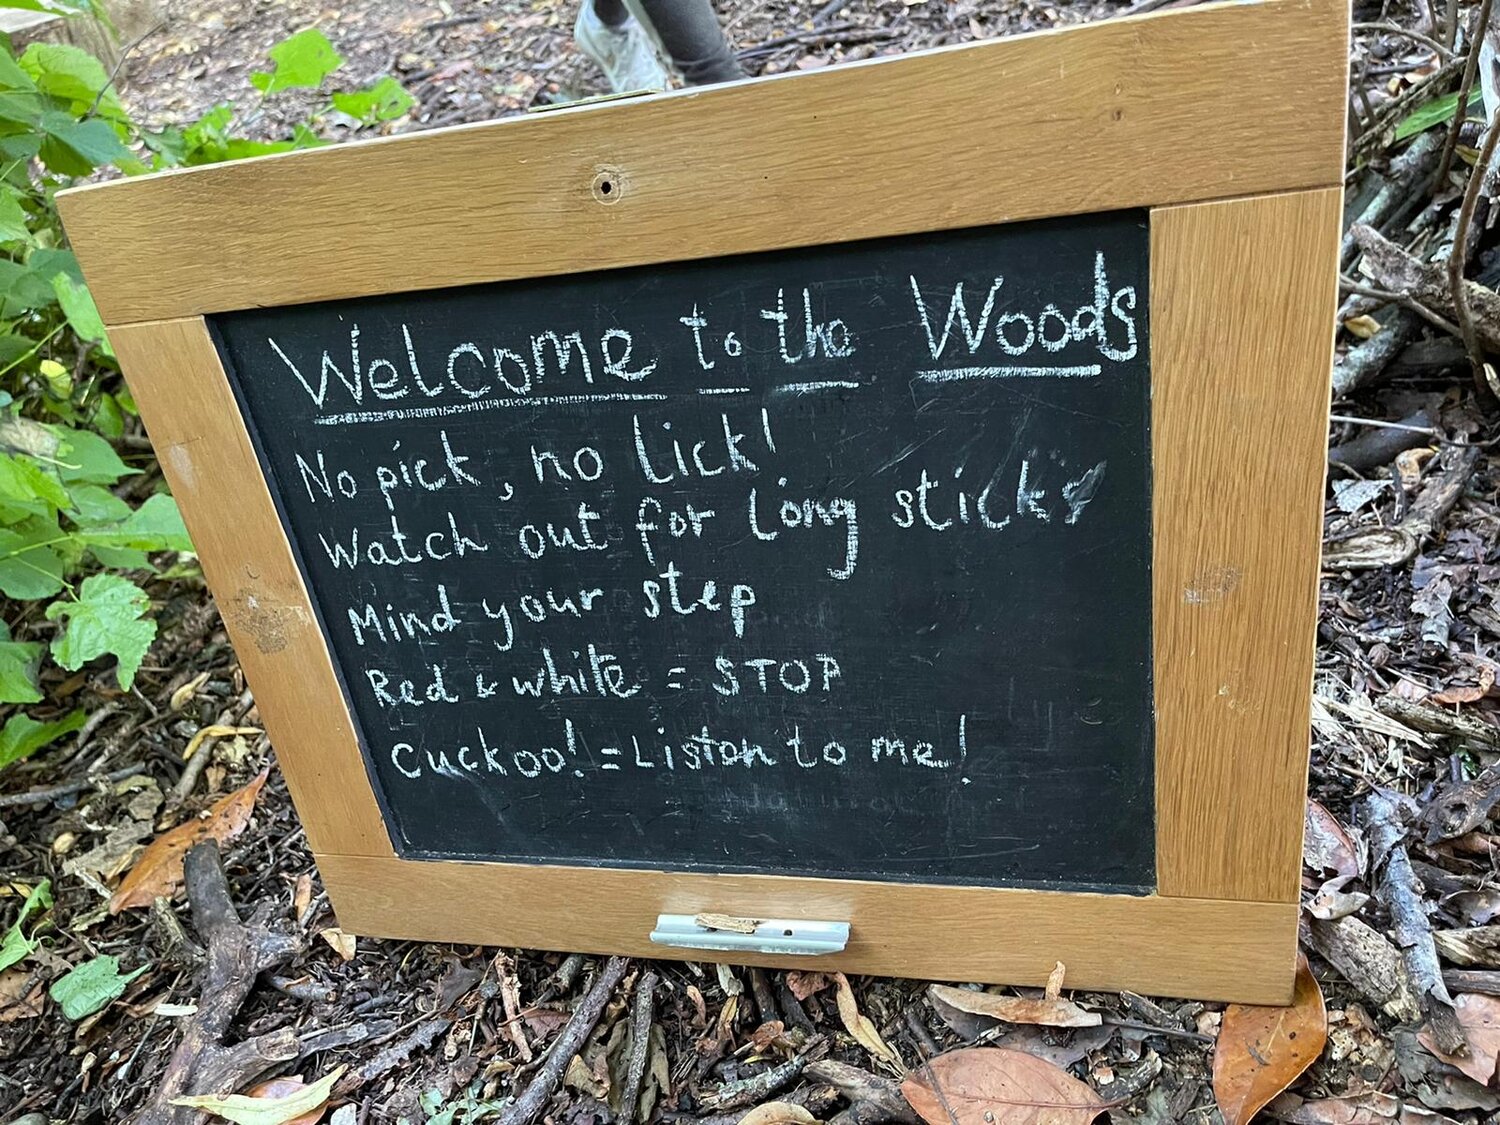 Welcome to the Woods
No pick, no lick!
Watch out for long sticks
Mind your step
Red & white = STOP
Cuckoo! = Listen to me!